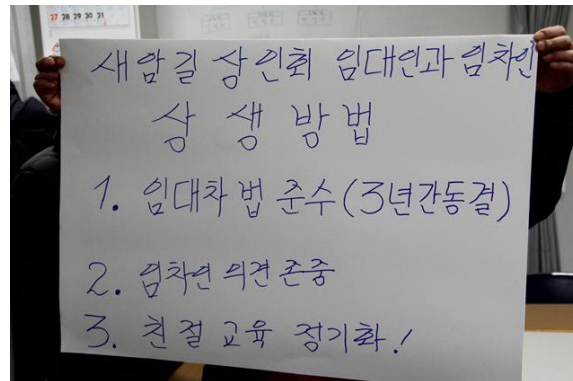 27 28 29 30 31
새암길 상인회 임대인과 임차인
상생방법
1. 임대차법 준수(3년간동결)
2. 임차인 의견존중
3. 친절교육 정기화!